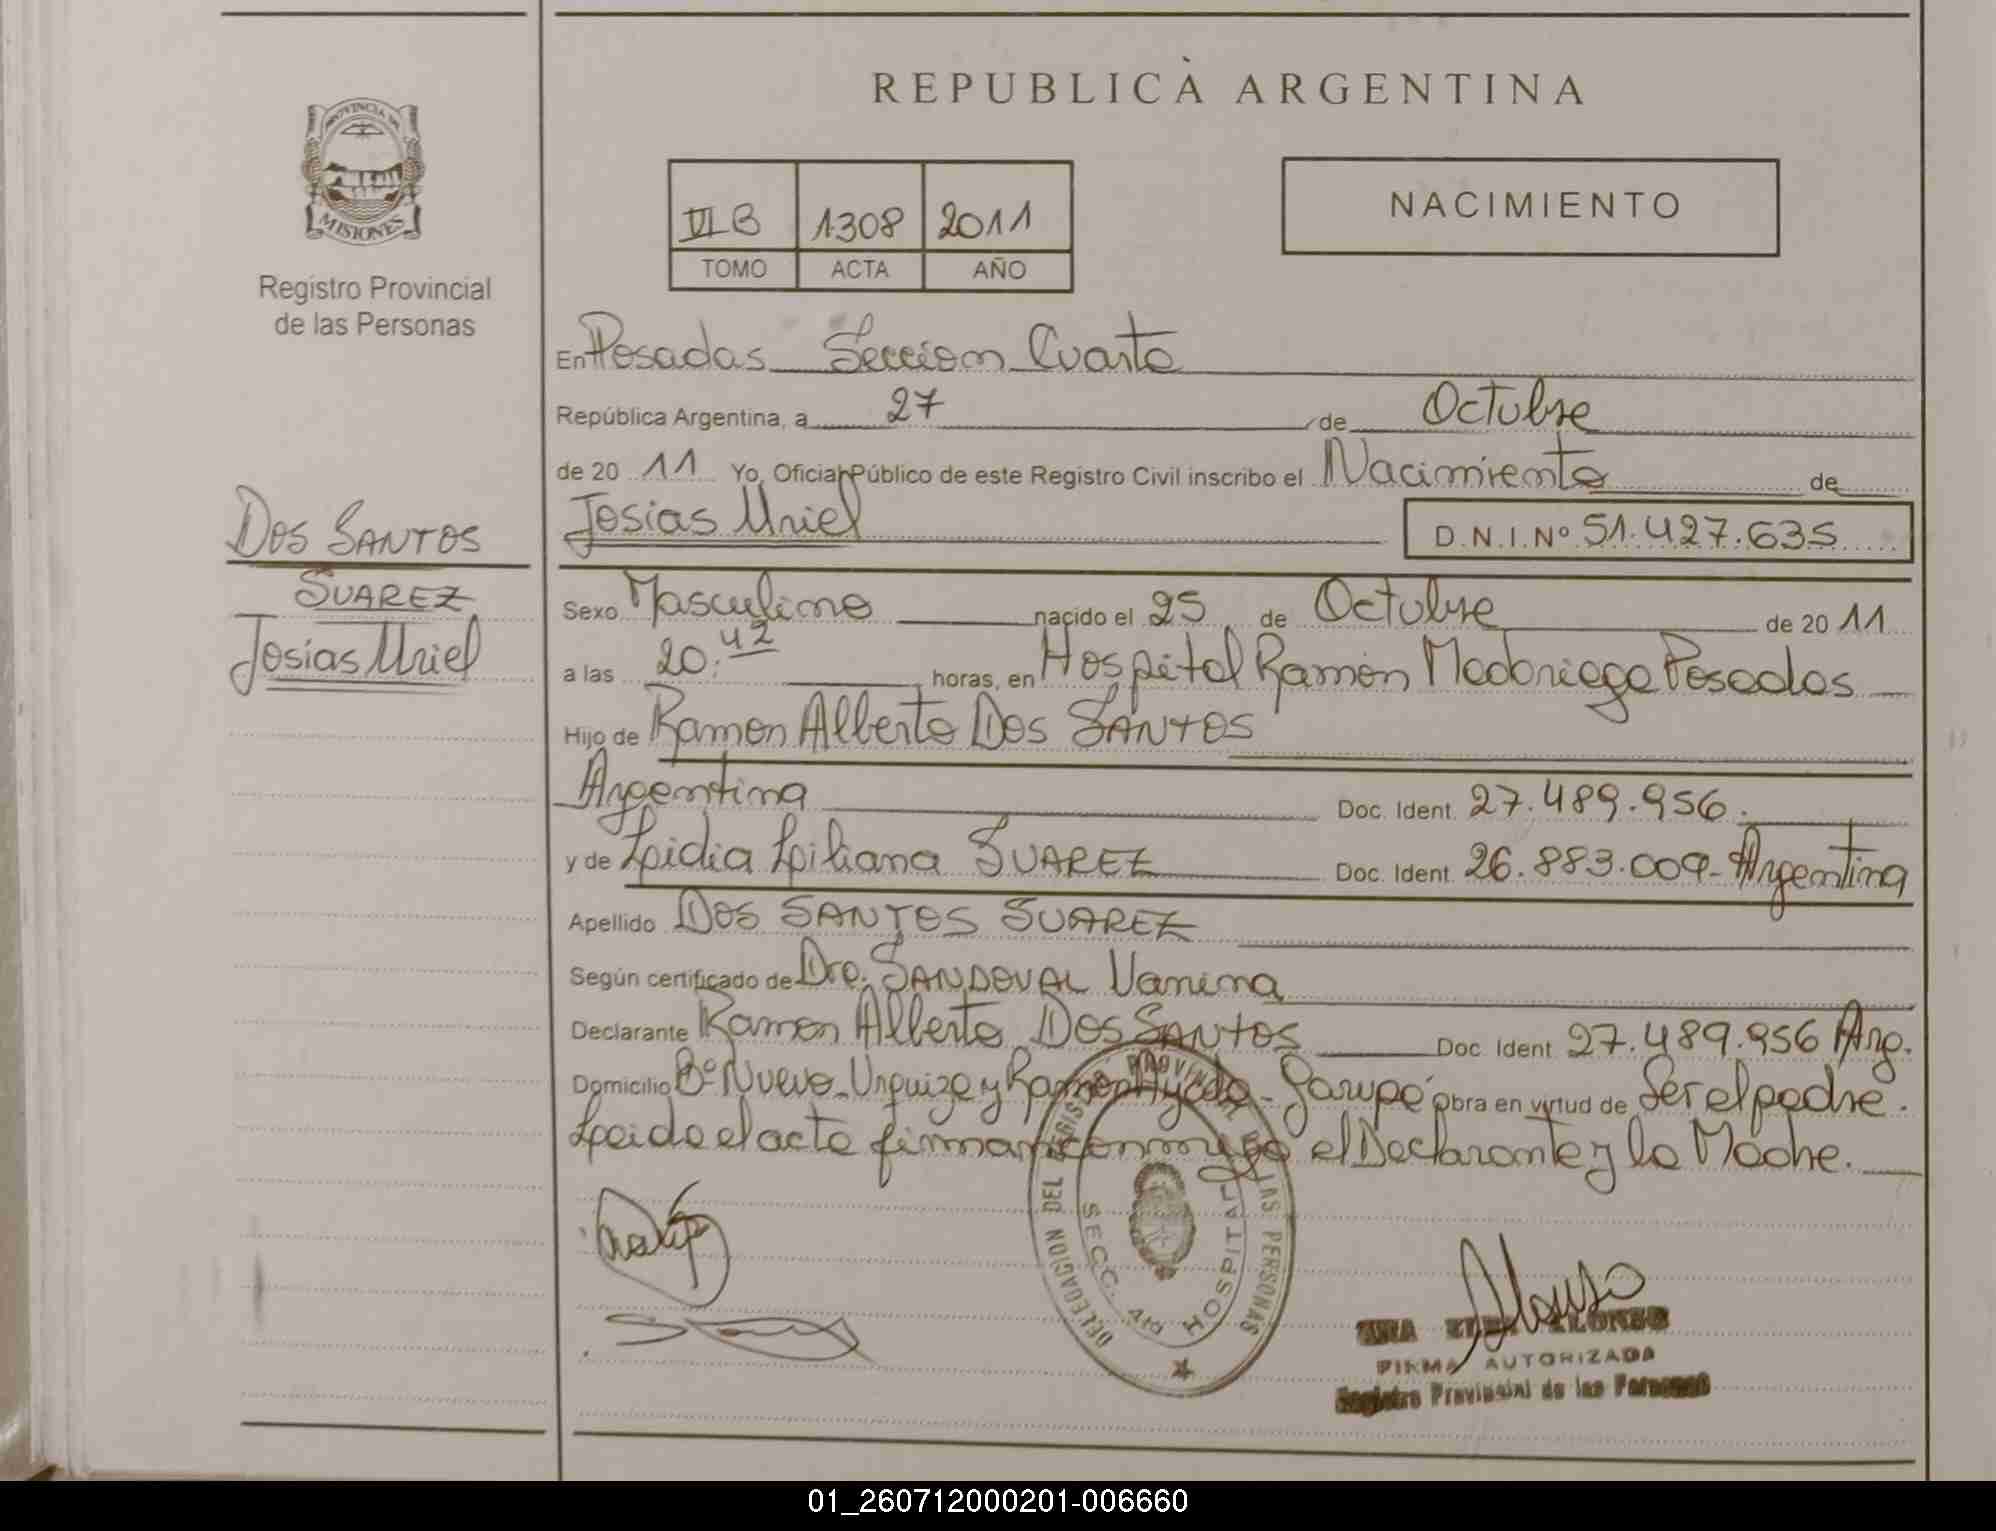 REPUBLICA ARGENTINA
PROVINCIA DE
MISIONES
Registro Provincial
de las Personas
VI B 1308 2011
TOMO ACTA AÑO
NACIMIENTO
En Posadas Seccion Cuarta
República Argentina, a 27 de Octubre
de 20 11 Yo, Oficial Público de este Registro Civil inscribo el Nacimiento de
Josias Uriel D.N.I. Nº 51.427.635
DOS SANTOS
SUAREZ
Josias Uriel
Sexo Masculino nacido el 25 de Octubre de 20 11
a las 20:42 horas, en Hospital Ramón Madariaga Posadas
Hijo de Ramon Alberto DOS SANTOS
Argentina Doc. Ident. 27.489.956.
y de Lidia Liliana SUAREZ Doc. Ident. 26.883.009 - Argentina
Apellido DOS SANTOS SUAREZ
Según certificado de Dra. SANDOVAL Vanina
Declarante Ramon Alberto DOS SANTOS Doc. Ident. 27.489.956 Arg.
Domicilio Bº Nuevo - Urquiza y Ramon - Garupé obra en virtud de Ser el padre.
Leida el acta firman conmigo el Declarante y la Madre.
DELEGACION DEL REGISTRO PROVINCIAL DE LAS PERSONAS
SECC. 4ta HOSPITAL
SRA ALONSO
FIRMA AUTORIZADA
Registro Provincial de las Personas
01_260712000201-006660